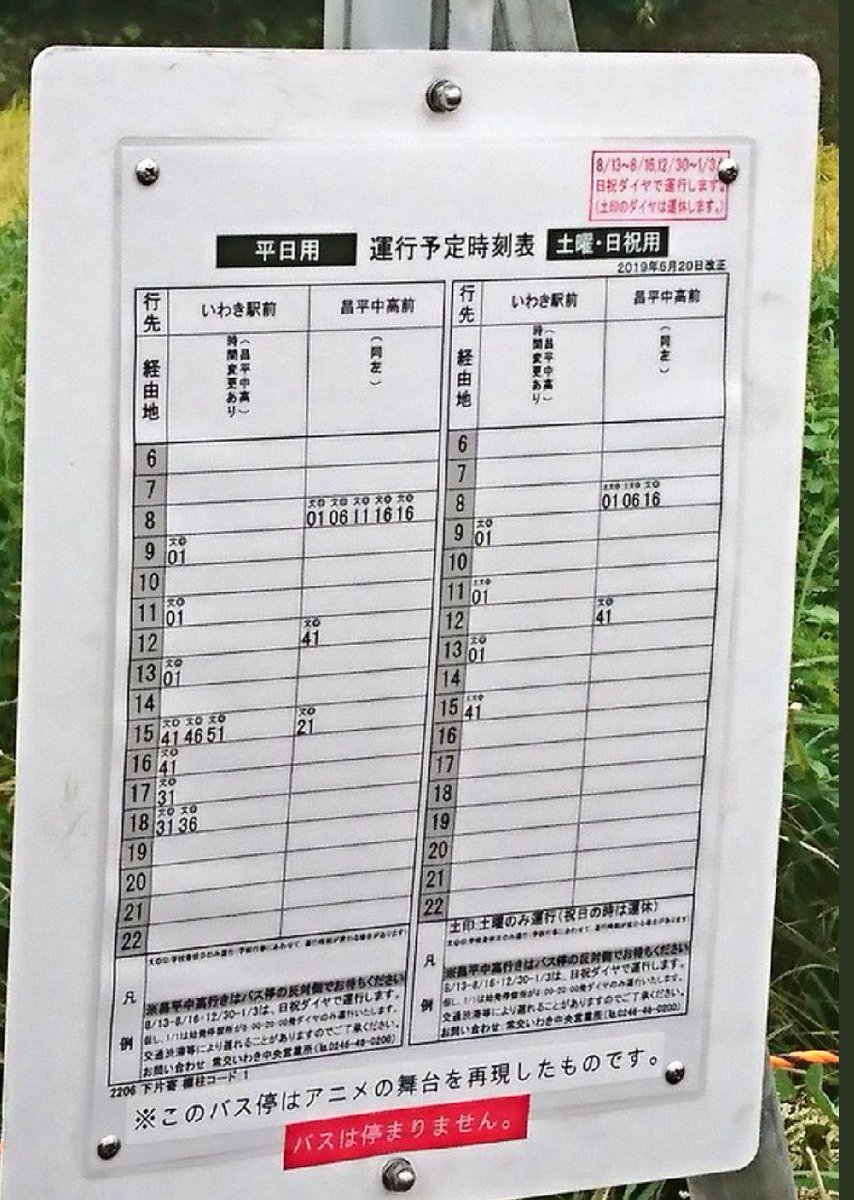 8/13~8/16,12/30~1/3は
日祝ダイヤで運行します。
(土印のダイヤは運休します。)
平日用 運行予定時刻表 土曜・日祝用
2019年6月20日改正
行先 いわき駅前 昌平中高前
経由地 (昌平中高)時間変更あり (同左)
6
7
8 01 06 11 16 16
9 01
10
11 01
12 41
13 01
14
15 41 46 51 21
16 41
17 31
18 31 36
19
20
21
22
凡例
※昌平中高行きはバス停の反対側でお待ちください
8/13-8/16・12/30-1/3は、日祝ダイヤで運行します。
但し、1/1は始発停留所が8:00-20:00発ダイヤのみ運行いたします。
交通渋滞等により遅れることがありますのでご了承ください。
お問い合わせ 常交いわき中央営業所(℡0246-46-0200)
行先 いわき駅前 昌平中高前
経由地 (昌平中高)時間変更あり (同左)
6
7
8 01 06 16
9 01
10
11 01
12 41
13 01
14
15 41
16
17
18
19
20
21
22
土印:土曜のみ運行(祝日の時は運休)
凡例
※昌平中高行きはバス停の反対側でお待ちください
8/13-8/16・12/30-1/3は、日祝ダイヤで運行します。
但し、1/1は始発停留所が8:00-20:00発ダイヤのみ運行いたします。
交通渋滞等により遅れることがありますのでご了承ください。
お問い合わせ 常交いわき中央営業所(℡0246-46-0200)
2206 下片寄 標柱コード 1
※このバス停はアニメの舞台を再現したものです。
バスは停まりません。